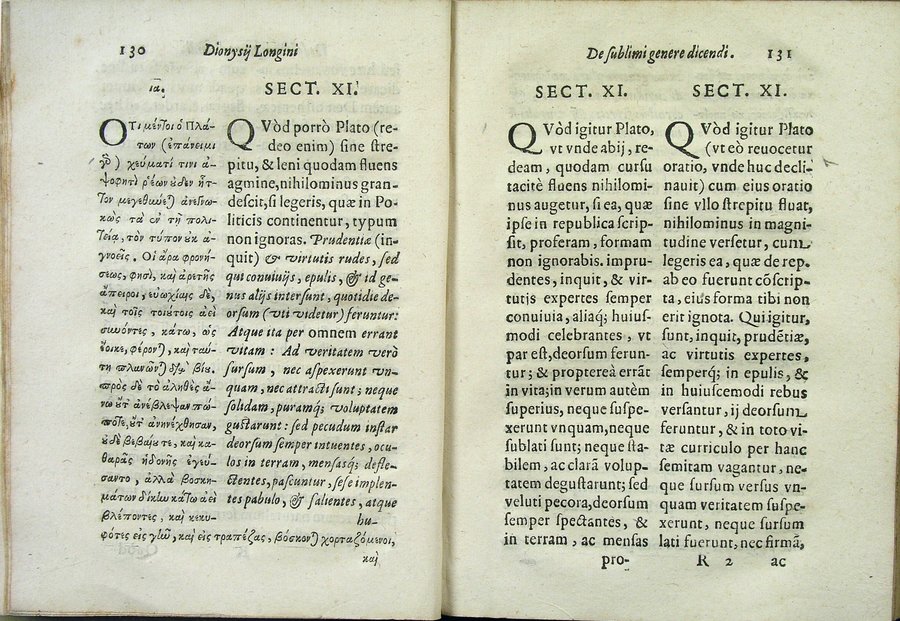 130
Dionysij Longini
ια.
Ο Τι μέντοι ὁ Πλά-
των (ἐπάνειμι
γὸ) χεύματί τινι ἀ-
ψοφητὶ ῥέων οὐδὲν ἧτ-
τον μεγεθωύε) ἀνεγνω-
κὼς τὰ ἐν τῇ πολι-
τείᾳ, τὸν τύπον οὐκ ἀ-
γνοεῖς. Οἱ ἄρα φρονή-
σεως, φησὶ, καὶ ἀρετῆς
ἄπειροι, εὐωχίαις δὲ,
καὶ τοῖς τοιούτοις ἀεὶ
συνόντες, κάτω, ὡς
ἔοικε, φέρον), καὶ ταύ-
τῃ πλανῶν) διὰ βίου.
πρὸς δὲ τὸ ἀληθὲς ἄ-
νω οὔτ᾽ ἀνέβλεψαν πώ-
ποτε, οὔτ᾽ ἀνηνέχθησαν,
οὐδὲ βεβαίου τε, καὶ κα-
θαρᾶς ἡδονῆς ἐγεύ-
σαντο, ἀλλὰ βοσκη-
μάτων δίκην κάτω ἀεὶ
βλέποντες, καὶ κεκυ-
φότες εἰς γῆν, καὶ εἰς τραπέζας, βόσκον) χορταζόμενοι,
καὶ
SECT. XI.
QVòd porrò Plato (re-
deo enim) sine stre-
pitu, & leni quodam fluens
agmine, nihilominus gran-
descit, si legeris, quæ in Po-
liticis continentur, typum
non ignoras. Prudentiæ (in-
quit) & virtutis rudes, sed
qui conuiuijs, epulis, & id ge-
nus alijs intersunt, quotidie de-
orsum (vti videtur) feruntur:
Atque ita per omnem errant
vitam: Ad veritatem verò
sursum, nec aspexerunt vn-
quam, nec attracti sunt; neque
solidam, puramq; voluptatem
gustarunt: sed pecudum instar
deorsum semper intuentes, ocu-
los in terram, mensasq; defle-
ctentes, pascuntur, sese implen-
tes pabulo, & salientes, atque
hu-
De sublimi genere dicendi.
131
SECT. XI.
QVòd igitur Plato,
vt vnde abij, re-
deam, quodam cursu
tacitè fluens nihilomi-
nus augetur, si ea, quæ
ipse in republica scrip-
sit, proferam, formam
non ignorabis. impru-
dentes, inquit, & vir-
tutis expertes semper
conuiuia, aliaq; huius-
modi celebrantes, vt
par est, deorsum ferun-
tur; & proptereà errāt
in vita; in verum autèm
superius, neque suspe-
xerunt vnquam, neque
sublati sunt; neque sta-
bilem, ac clarā volup-
tatem degustarunt; sed
veluti pecora, deorsum
semper spectantes, &
in terram, ac mensas
pro-
SECT. XI.
QVòd igitur Plato
(vt eò reuocetur
oratio, vnde huc decli-
nauit) cum eius oratio
sine vllo strepitu fluat,
nihilominus in magni-
tudine versetur, cum
legeris ea, quæ de rep.
ab eo fuerunt cōscrip-
ta, eius forma tibi non
erit ignota. Qui igitur,
sunt, inquit, prudētiæ,
ac virtutis expertes,
semperq; in epulis, &
in huiuscemodi rebus
versantur, ij deorsum
feruntur, & in toto vi-
tæ curriculo per hanc
semitam vagantur, ne-
que sursum versus vn-
quam veritatem suspe-
xerunt, neque sursum
lati fuerunt, nec firmā,
R 2
ac